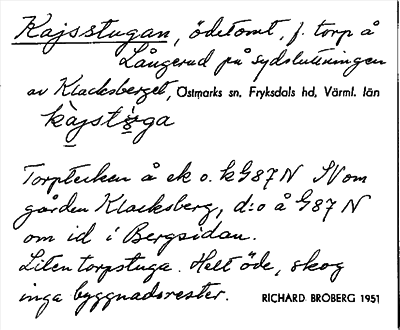 Kajsstugan, ödetomt, f. torp å
Långerud på sydsluttningen
av Klacksberget, Östmarks sn, Fryksdals hd, Värml. län
kàjstùga
Torptecken å ek o. k G87N SV om
gården Klacksberg, d:o å G87N
om id i Bergsidan.
Liten torpstuga. Helt öde, skog
inga byggnadsrester. RICHARD BROBERG 1951